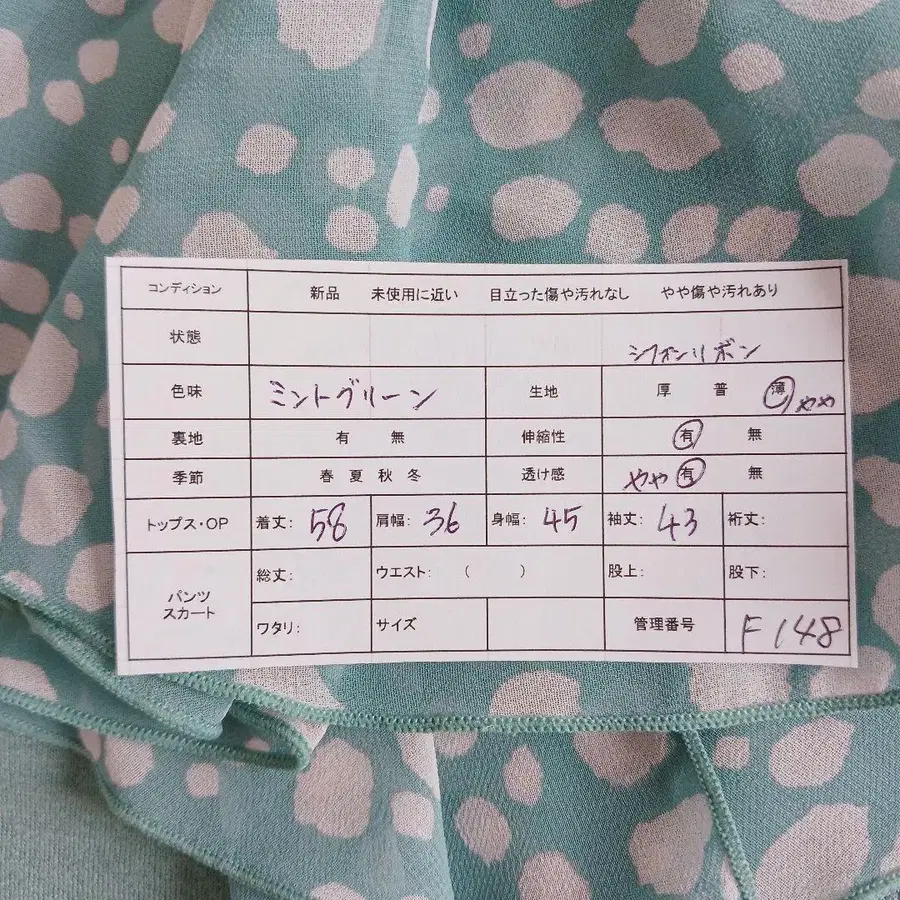 コンディション 新品 未使用に近い 目立った傷や汚れなし やや傷や汚れあり
状態
シフォンリボン
色味 ミントグリーン 生地 厚 普 薄 やや
裏地 有 無 伸縮性 有 無
季節 春 夏 秋 冬 透け感 やや 有 無
トップス・OP 着丈: 58 肩幅: 36 身幅: 45 袖丈: 43 裄丈:
パンツ スカート 総丈: ウエスト: ( ) 股上: 股下:
ワタリ: サイズ 管理番号 F148